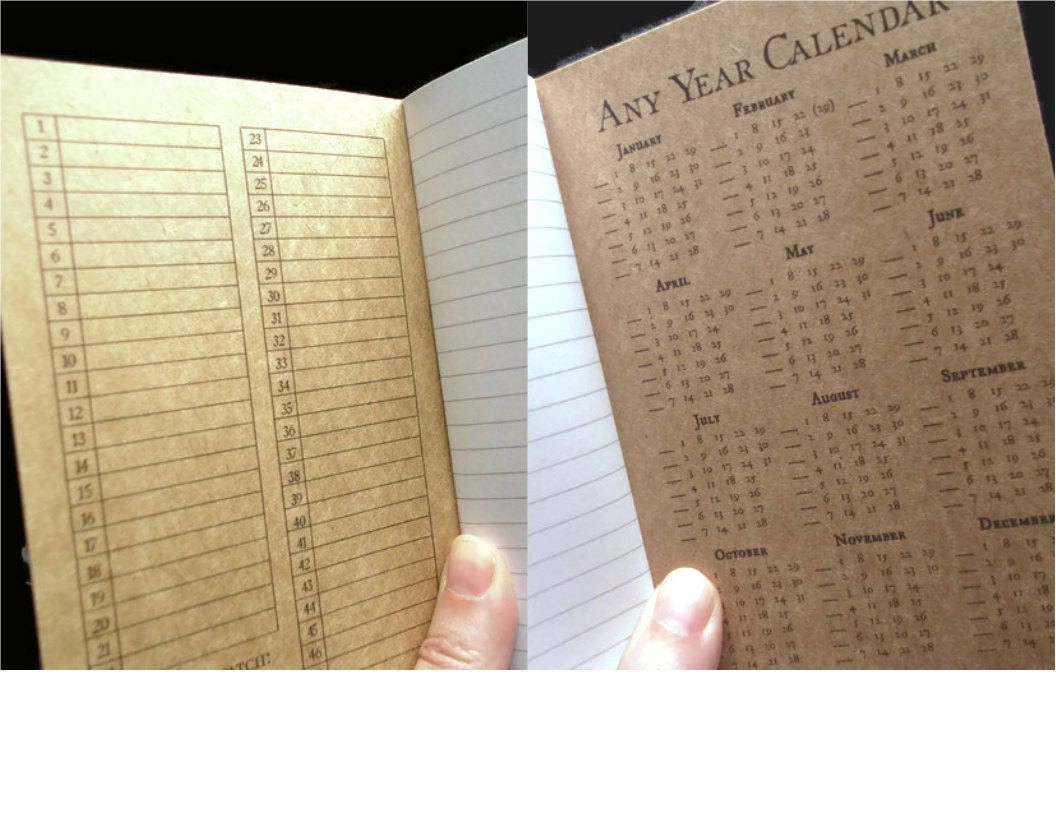 1
2
3
4
5
6
7
8
9
10
11
12
13
14
15
16
17
18
19
20
21
23
24
25
26
27
28
29
30
31
32
33
34
35
36
37
38
39
40
41
42
43
44
45
46
ATCH:
ANY YEAR CALENDAR
JANUARY
1 8 15 22 29
2 9 16 23 30
3 10 17 24 31
4 11 18 25
5 12 19 26
6 13 20 27
7 14 21 28
FEBRUARY
1 8 15 22 (29)
2 9 16 23
3 10 17 24
4 11 18 25
5 12 19 26
6 13 20 27
7 14 21 28
MARCH
1 8 15 22 29
2 9 16 23 30
3 10 17 24 31
4 11 18 25
5 12 19 26
6 13 20 27
7 14 21 28
APRIL
1 8 15 22 29
2 9 16 23 30
3 10 17 24
4 11 18 25
5 12 19 26
6 13 20 27
7 14 21 28
MAY
1 8 15 22 29
2 9 16 23 30
3 10 17 24 31
4 11 18 25
5 12 19 26
6 13 20 27
7 14 21 28
JUNE
1 8 15 22 29
2 9 16 23 30
3 10 17 24
4 11 18 25
5 12 19 26
6 13 20 27
7 14 21 28
JULY
1 8 15 22 29
2 9 16 23 30
3 10 17 24 31
4 11 18 25
5 12 19 26
6 13 20 27
7 14 21 28
AUGUST
1 8 15 22 29
2 9 16 23 30
3 10 17 24 31
4 11 18 25
5 12 19 26
6 13 20 27
7 14 21 28
SEPTEMBER
1 8 15 22
2 9 16 23 30
3 10 17 24
4 11 18 25
5 12 19 26
6 13 20 27
7 14 21 28
OCTOBER
1 8 15 22 29
9 16 23 30
10 17 24 31
11 18 25
12 19 26
13 20 27
14 21 28
NOVEMBER
1 8 15 22 29
2 9 16 23 30
3 10 17 24
4 11 18 25
5 12 19 26
6 13 20 27
7 14 21 28
DECEMBER
1 8 15
2 9 16
3 10 17
4 11 18
5 12 19
6 13 20
7 14